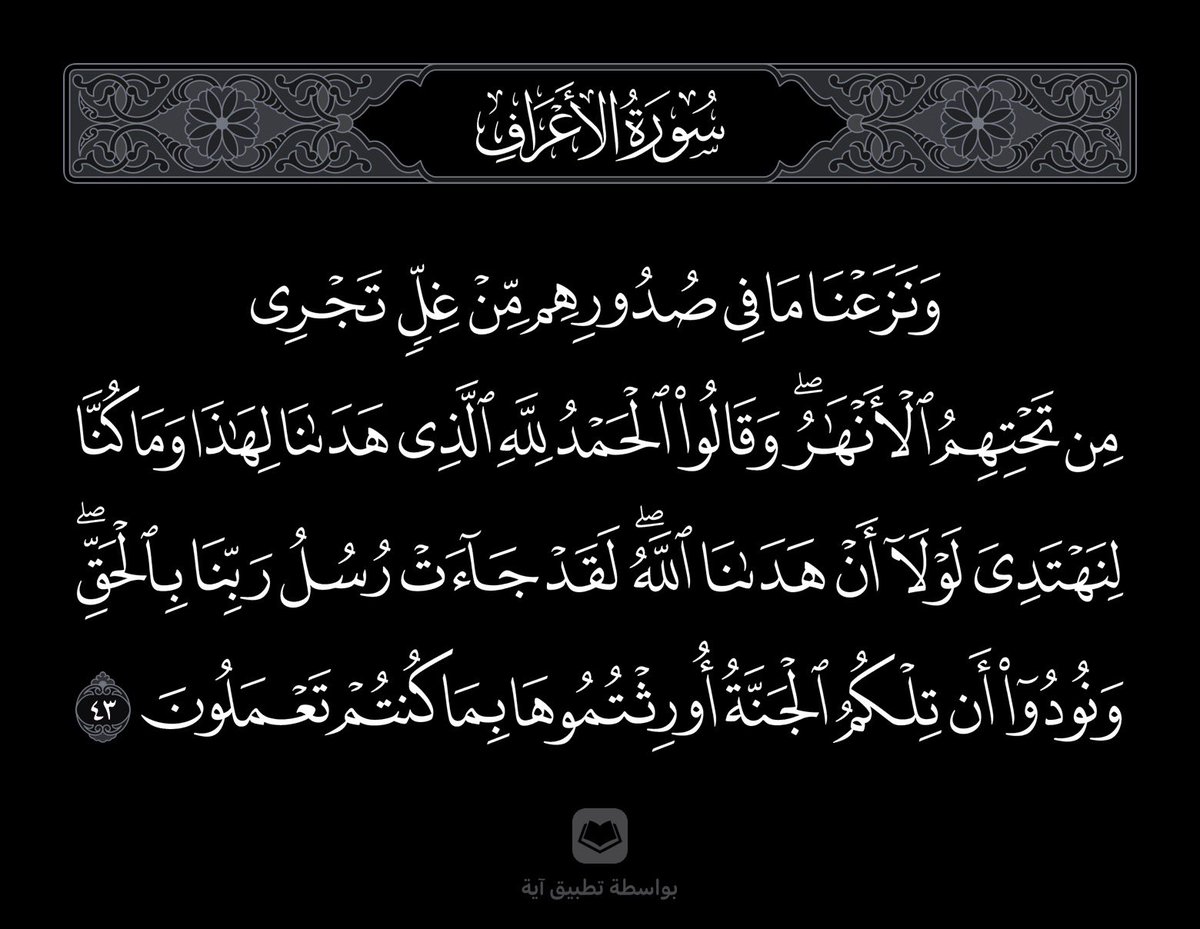 سُورَةُ الأَعْرَافِ
وَنَزَعْنَا مَا فِي صُدُورِهِم مِّنْ غِلٍّ تَجْرِى
مِن تَحْتِهِمُ ٱلْأَنْهَٰرُ ۖ وَقَالُوا۟ ٱلْحَمْدُ لِلَّهِ ٱلَّذِى هَدَىٰنَا لِهَٰذَا وَمَا كُنَّا
لِنَهْتَدِىَ لَوْلَآ أَنْ هَدَىٰنَا ٱللَّهُ ۖ لَقَدْ جَآءَتْ رُسُلُ رَبِّنَا بِٱلْحَقِّ ۖ
وَنُودُوٓا۟ أَن تِلْكُمُ ٱلْجَنَّةُ أُورِثْتُمُوهَا بِمَا كُنتُمْ تَعْمَلُونَ ٤٣
بواسطة تطبيق آية